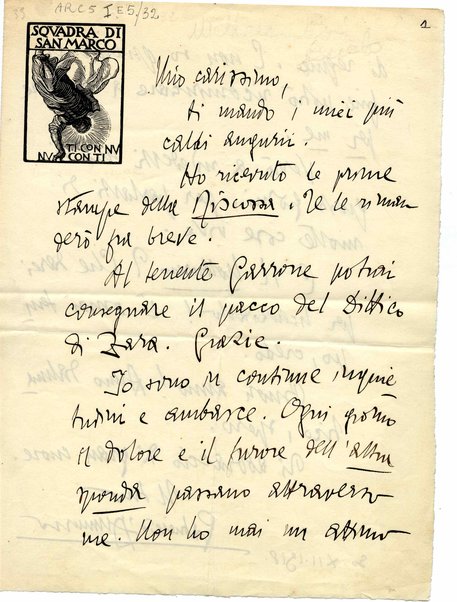 33 ARC 5 I E 5/32
1
SQVADRA DI
SAN MARCO
TI CON NV
NV CON TI
Mio carissimo,
ti mando i miei più
caldi augurii.
Ho ricevuto le prime
stampe della Riscossa. Te le riman
derò fra breve.
Al tenente Garrone potrai
consegnare il pacco del Dittico
di Zara. Grazie.
Io sono in continue inquie
tudini e ambasce. Ogni giorno
il dolore e il furore dell'altra
sponda passano attraverso
me. Non ho mai un attimo